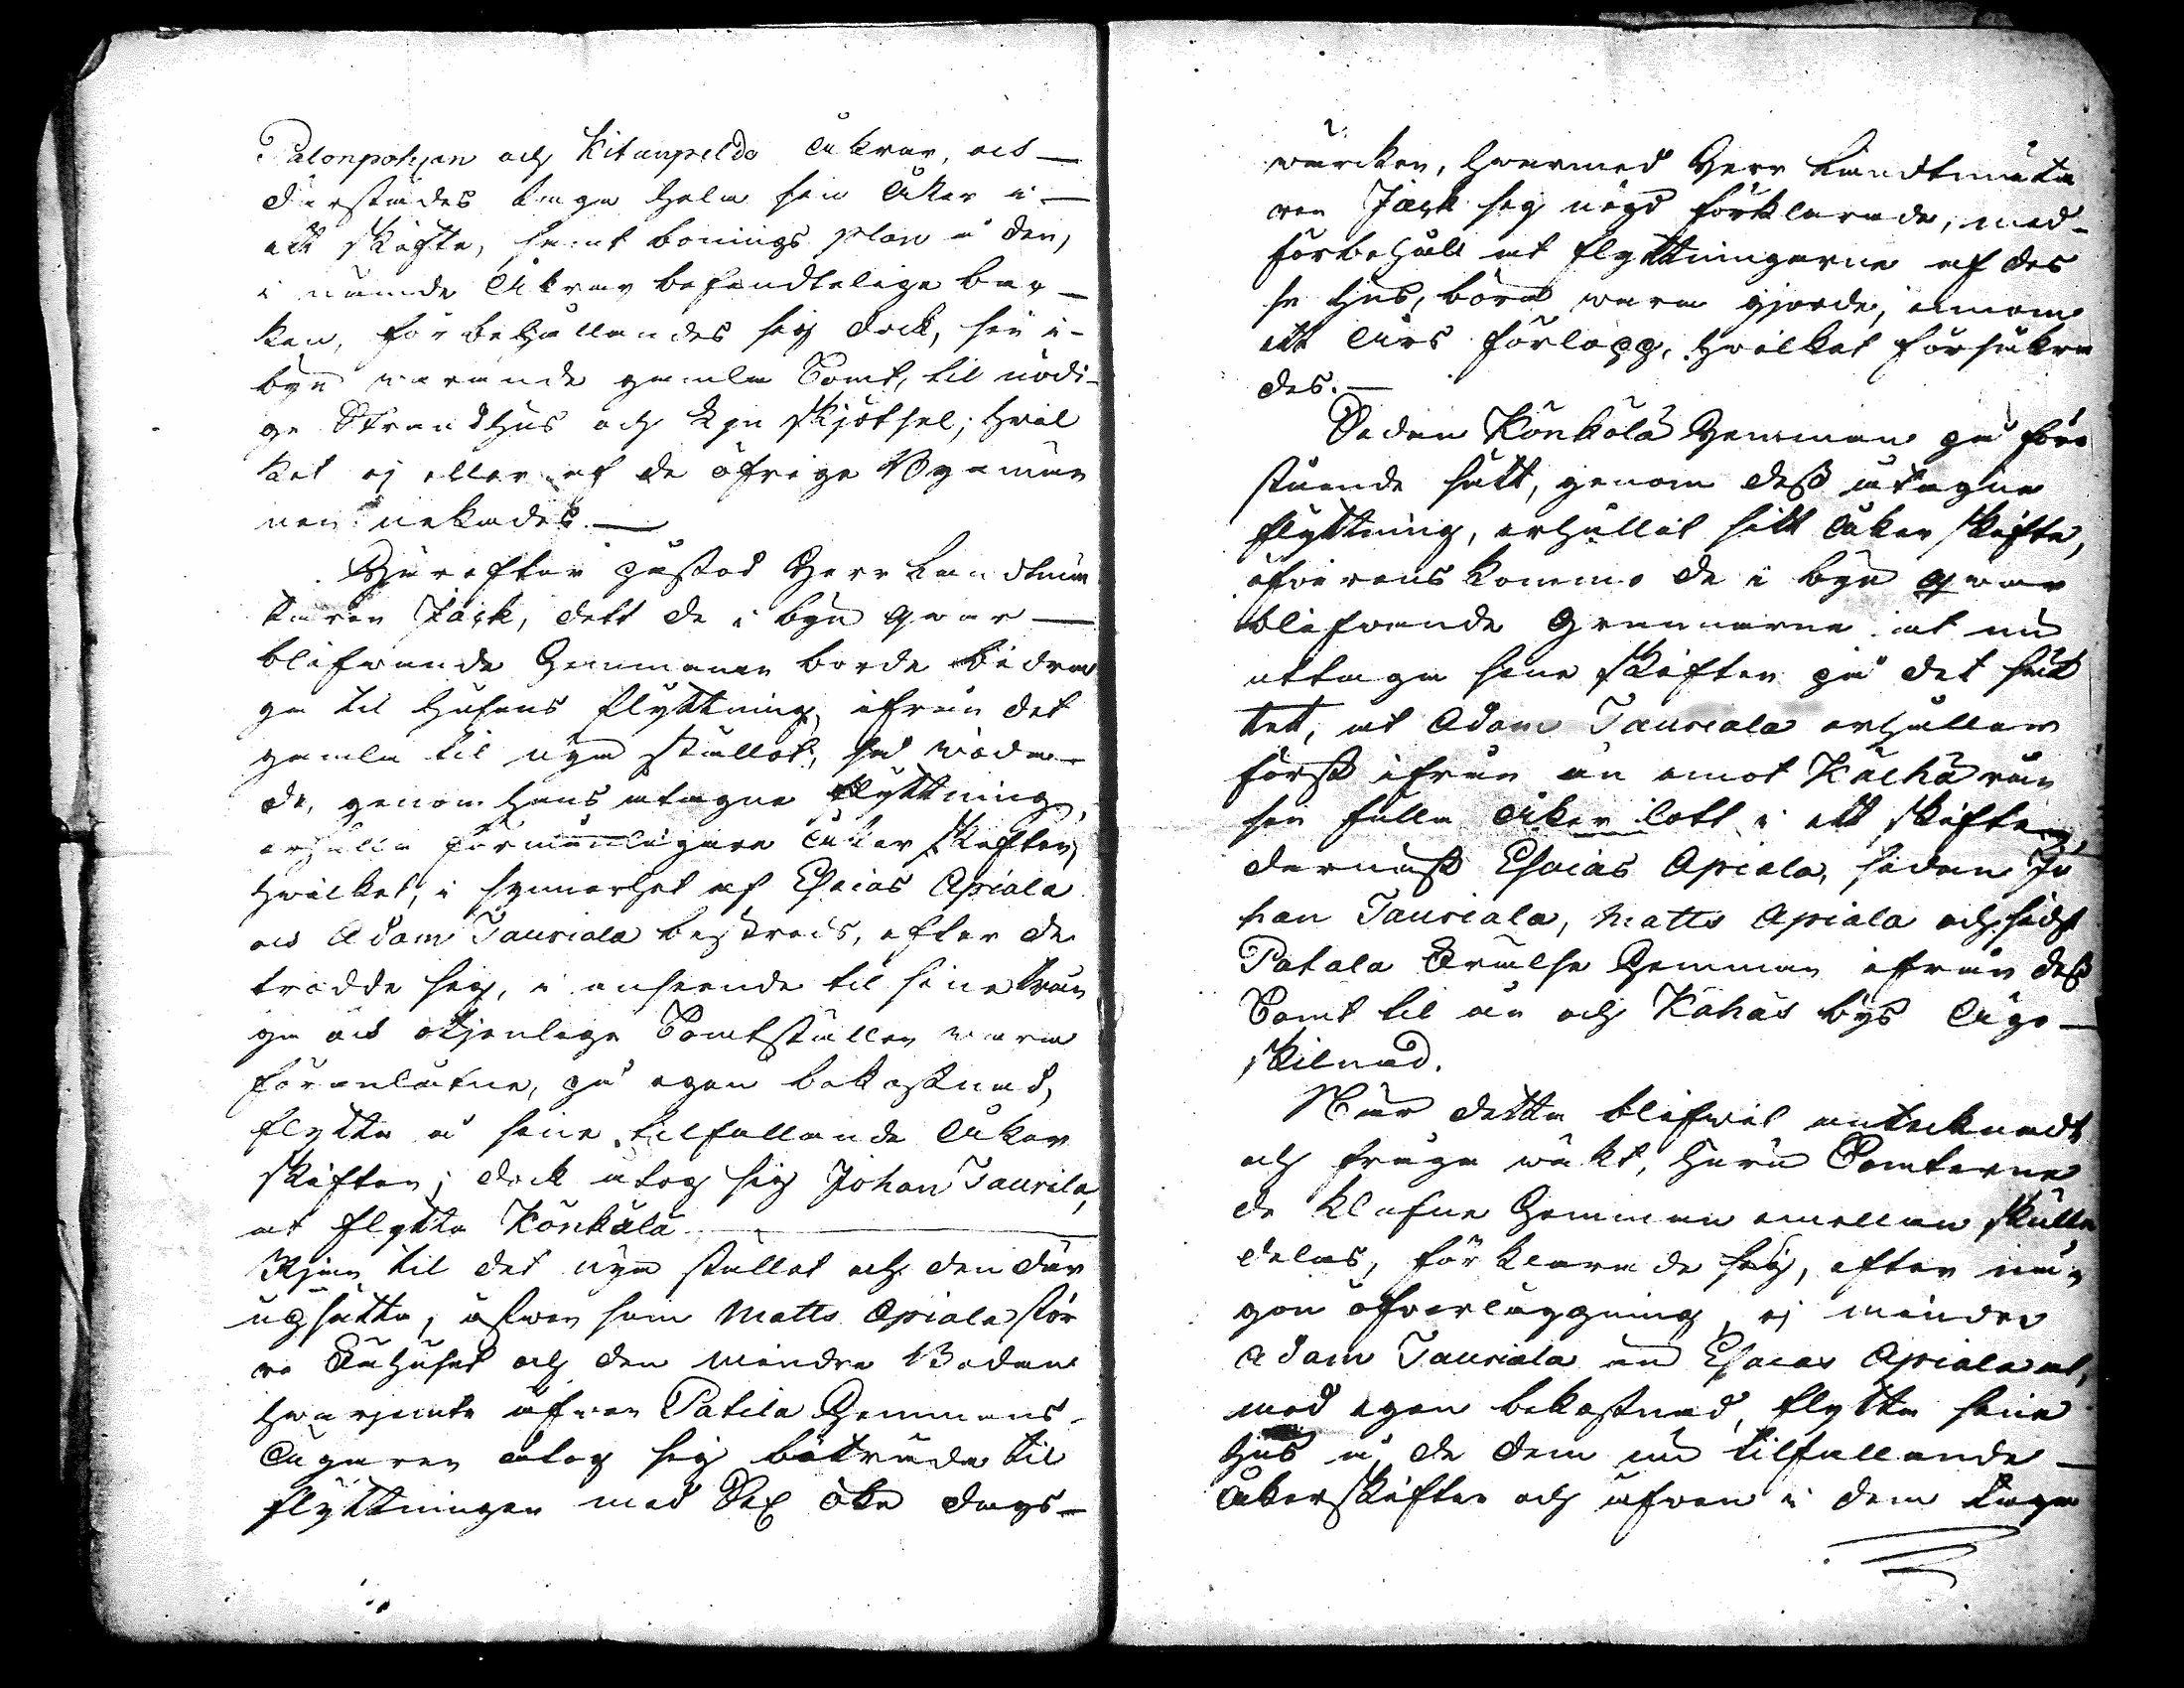 Palonpohjan och Kitunpeldo åkrar, och
därstädes taga hela sin åker i
ett skifte, samt bonings plan å den,
i nämnde åkrar befindtelige bac-
ken, förbehållandes sig dock, sin i
byn warande gamla Tomt, til nödi-
ge Strandhus och skjötsel; hvil
ket ej eller af de öfrige Byamän
nen nekades.
Härefter påstod Herr Landtmä
taren Jack, dett de i byn qwar
blifwande Hemmanen borde bidra
ga til husens flyttning, ifrån det
gamla til nya stället, så wida
de, genom hans utagne flyttning,
erhålla förmånligare åker skiften,
hwilket, i synnerhet af Esaias Apiala
och Adam Tauriala bestreds, efter de
trodde sig, i anseende til sine trån
ga och otjenlige Tomtställen wara
föranlåtne, på egen bekostnad,
flytta å sine tilfallande åker
skiften; dock åtog sig Johan Taurila,
at flytta Könkälä
Rian til det nya stället och den där
upsätta, äfwen som Matts Apiala stör
re Fähuset och den mindre Boden
hwarjemte äfwen Patila Hemmans
ägaren åtog sig biträda til
flyttningen med Sex öke dags-
wärcken, hwarmed Herr Landtmäta
ren Jack sig nögd förklarade, med
förbehåll at flyttningarne af des
se hus, böra wara gjorde, innom
ett års förlopp, hwilket försäkra
des.
Sedan Könkölä Hemman på före
stående sätt, genom dess åtagne
flyttning, erhållit sitt åker skifte,
öfwerens kommo de i byn qwar
blifwande Grannarne at nu
uttaga sine skiften på det sät
tet, at Adam Tauriala erhåller
först ifrån ån emot Kälhä rån
sin fulla åker lott i ett skifte,
dernäst Esaias Apiala, sedan Jo
han Tauriala, Matts Apiala och sidst
Patala Frälse Hemman ifrån dess
Tomt til ån och Kähäs bys ägo
skilnad.
När detta blifwit antecknadt
och fråga wäkt, huru Tomterne
de klufne Hemman emellan skulle
delas, förklarade sig, efter nå-
gon öfwerläggning, ej mindre
Adam Tauriala än Esaias Apiala at,
med egen bekostnad, flytta sine
hus å de dem nu tilfallande
åkerskiften och äfwen i dem taga